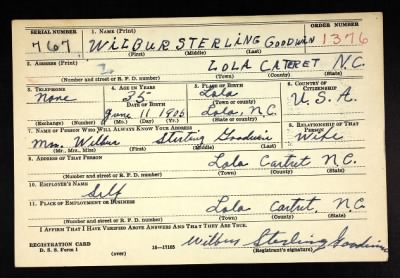 SERIAL NUMBER 1. NAME (Print) ORDER NUMBER
767 WILBUR STERLING GOODWIN 1376
(First) (Middle) (Last)
2. ADDRESS (Print)
LOLA CATERET N.C.
(Number and street or R. F. D. number) (Town) (County) (State)
3. TELEPHONE 4. AGE IN YEARS 5. PLACE OF BIRTH 6. COUNTRY OF CITIZENSHIP
None Lola U.S.A.
DATE OF BIRTH (Town or county)
June 11 1906 Lola, N.C.
(Exchange) (Number) (Mo.) (Day) (Yr.) (State or country)
7. NAME OF PERSON WHO WILL ALWAYS KNOW YOUR ADDRESS 8. RELATIONSHIP OF THAT PERSON
Mrs. Wilbur Sterling Goodwin Wife
(Mr., Mrs., Miss) (First) (Middle) (Last)
9. ADDRESS OF THAT PERSON
Lola Cartret N.C.
(Number and street or R. F. D. number) (Town) (County) (State)
10. EMPLOYER'S NAME
Self
11. PLACE OF EMPLOYMENT OR BUSINESS
Lola Cartret, N.C.
(Number and street or R. F. D. number) (Town) (County) (State)
I AFFIRM THAT I HAVE VERIFIED ABOVE ANSWERS AND THAT THEY ARE TRUE.
REGISTRATION CARD
D. S. S. Form 1 (over) 16—17105 Wilbur Sterling Goodwin
(Registrant's signature)